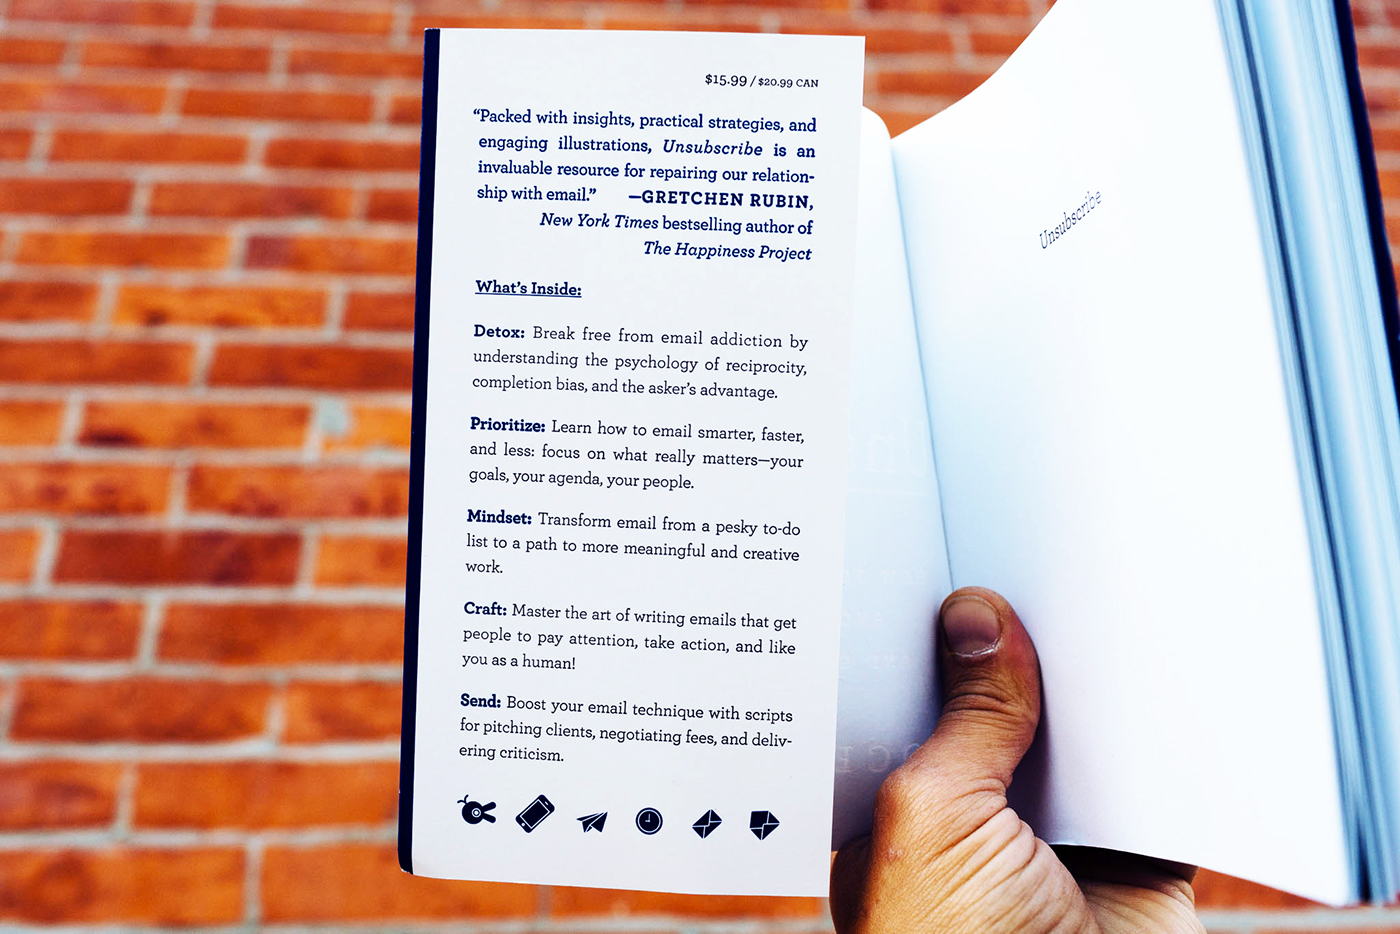 $15.99 / $20.99 CAN
“Packed with insights, practical strategies, and
engaging illustrations, Unsubscribe is an
invaluable resource for repairing our relation-
ship with email.” —GRETCHEN RUBIN,
New York Times bestselling author of
The Happiness Project
What’s Inside:
Detox: Break free from email addiction by
understanding the psychology of reciprocity,
completion bias, and the asker’s advantage.
Prioritize: Learn how to email smarter, faster,
and less: focus on what really matters—your
goals, your agenda, your people.
Mindset: Transform email from a pesky to-do
list to a path to more meaningful and creative
work.
Craft: Master the art of writing emails that get
people to pay attention, take action, and like
you as a human!
Send: Boost your email technique with scripts
for pitching clients, negotiating fees, and deliv-
ering criticism.
Unsubscribe